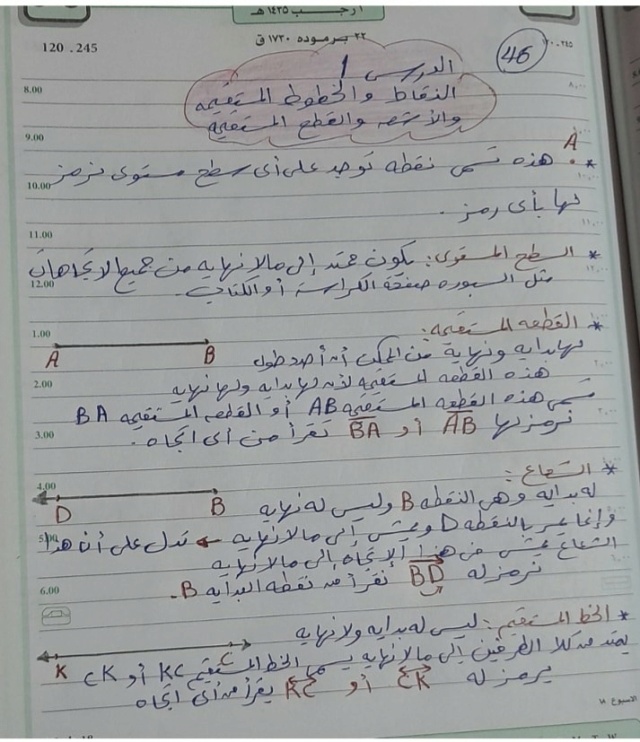 ١ رجب ١٤٢٥ هـ
120 . 245
٢٢ برموده ١٧٢٠ ق
46
الدرس 1
النقاط والخطوط المستقيمه
والأشعه والقطع المستقيمه
8.00
9.00
A
* هذه تسمى نقطه توجد على أى سطح مستوى نرمز
10.00
لها بأى رمز .
11.00
* السطح المستوى: يكون ممتد إلى مالا نهايه من جميع الاتجاهات
12.00
مثل السبوره صفحة الكراسة أو الكتاب .
* القطعه المستقيمه:
1.00
A B
لها بدايه ونهاية من الممكن أن أحدد طول
2.00
هذه القطعه المستقيمه لأن لها بدايه ولها نهايه
تسمى هذه القطعه المستقيمه AB أو القطعه المستقيمه BA
3.00
نرمز لها AB أو BA تقرأ من أى اتجاه .
* الشعاع :
4.00
D B
له بدايه وهى النقطه B وليس له نهايه
5.00
وإنما يمر بالنقطه D ويمشى إلى مالا نهايه ← تدل على أن هذا
الشعاع يمشى فى هذا الإتجاه إلى مالا نهايه
6.00
نرمز له BD نقرأ من نقطه البدايه B .
* الخط المستقيم : ليس له بدايه ولا نهايه
K C
يمتد من كلا الطرفين إلى مالا نهايه يسمى الخط المستقيم KC أو CK
يرمز له CK أو KC يقرأ من أى اتجاه
الاسبوع ١٨